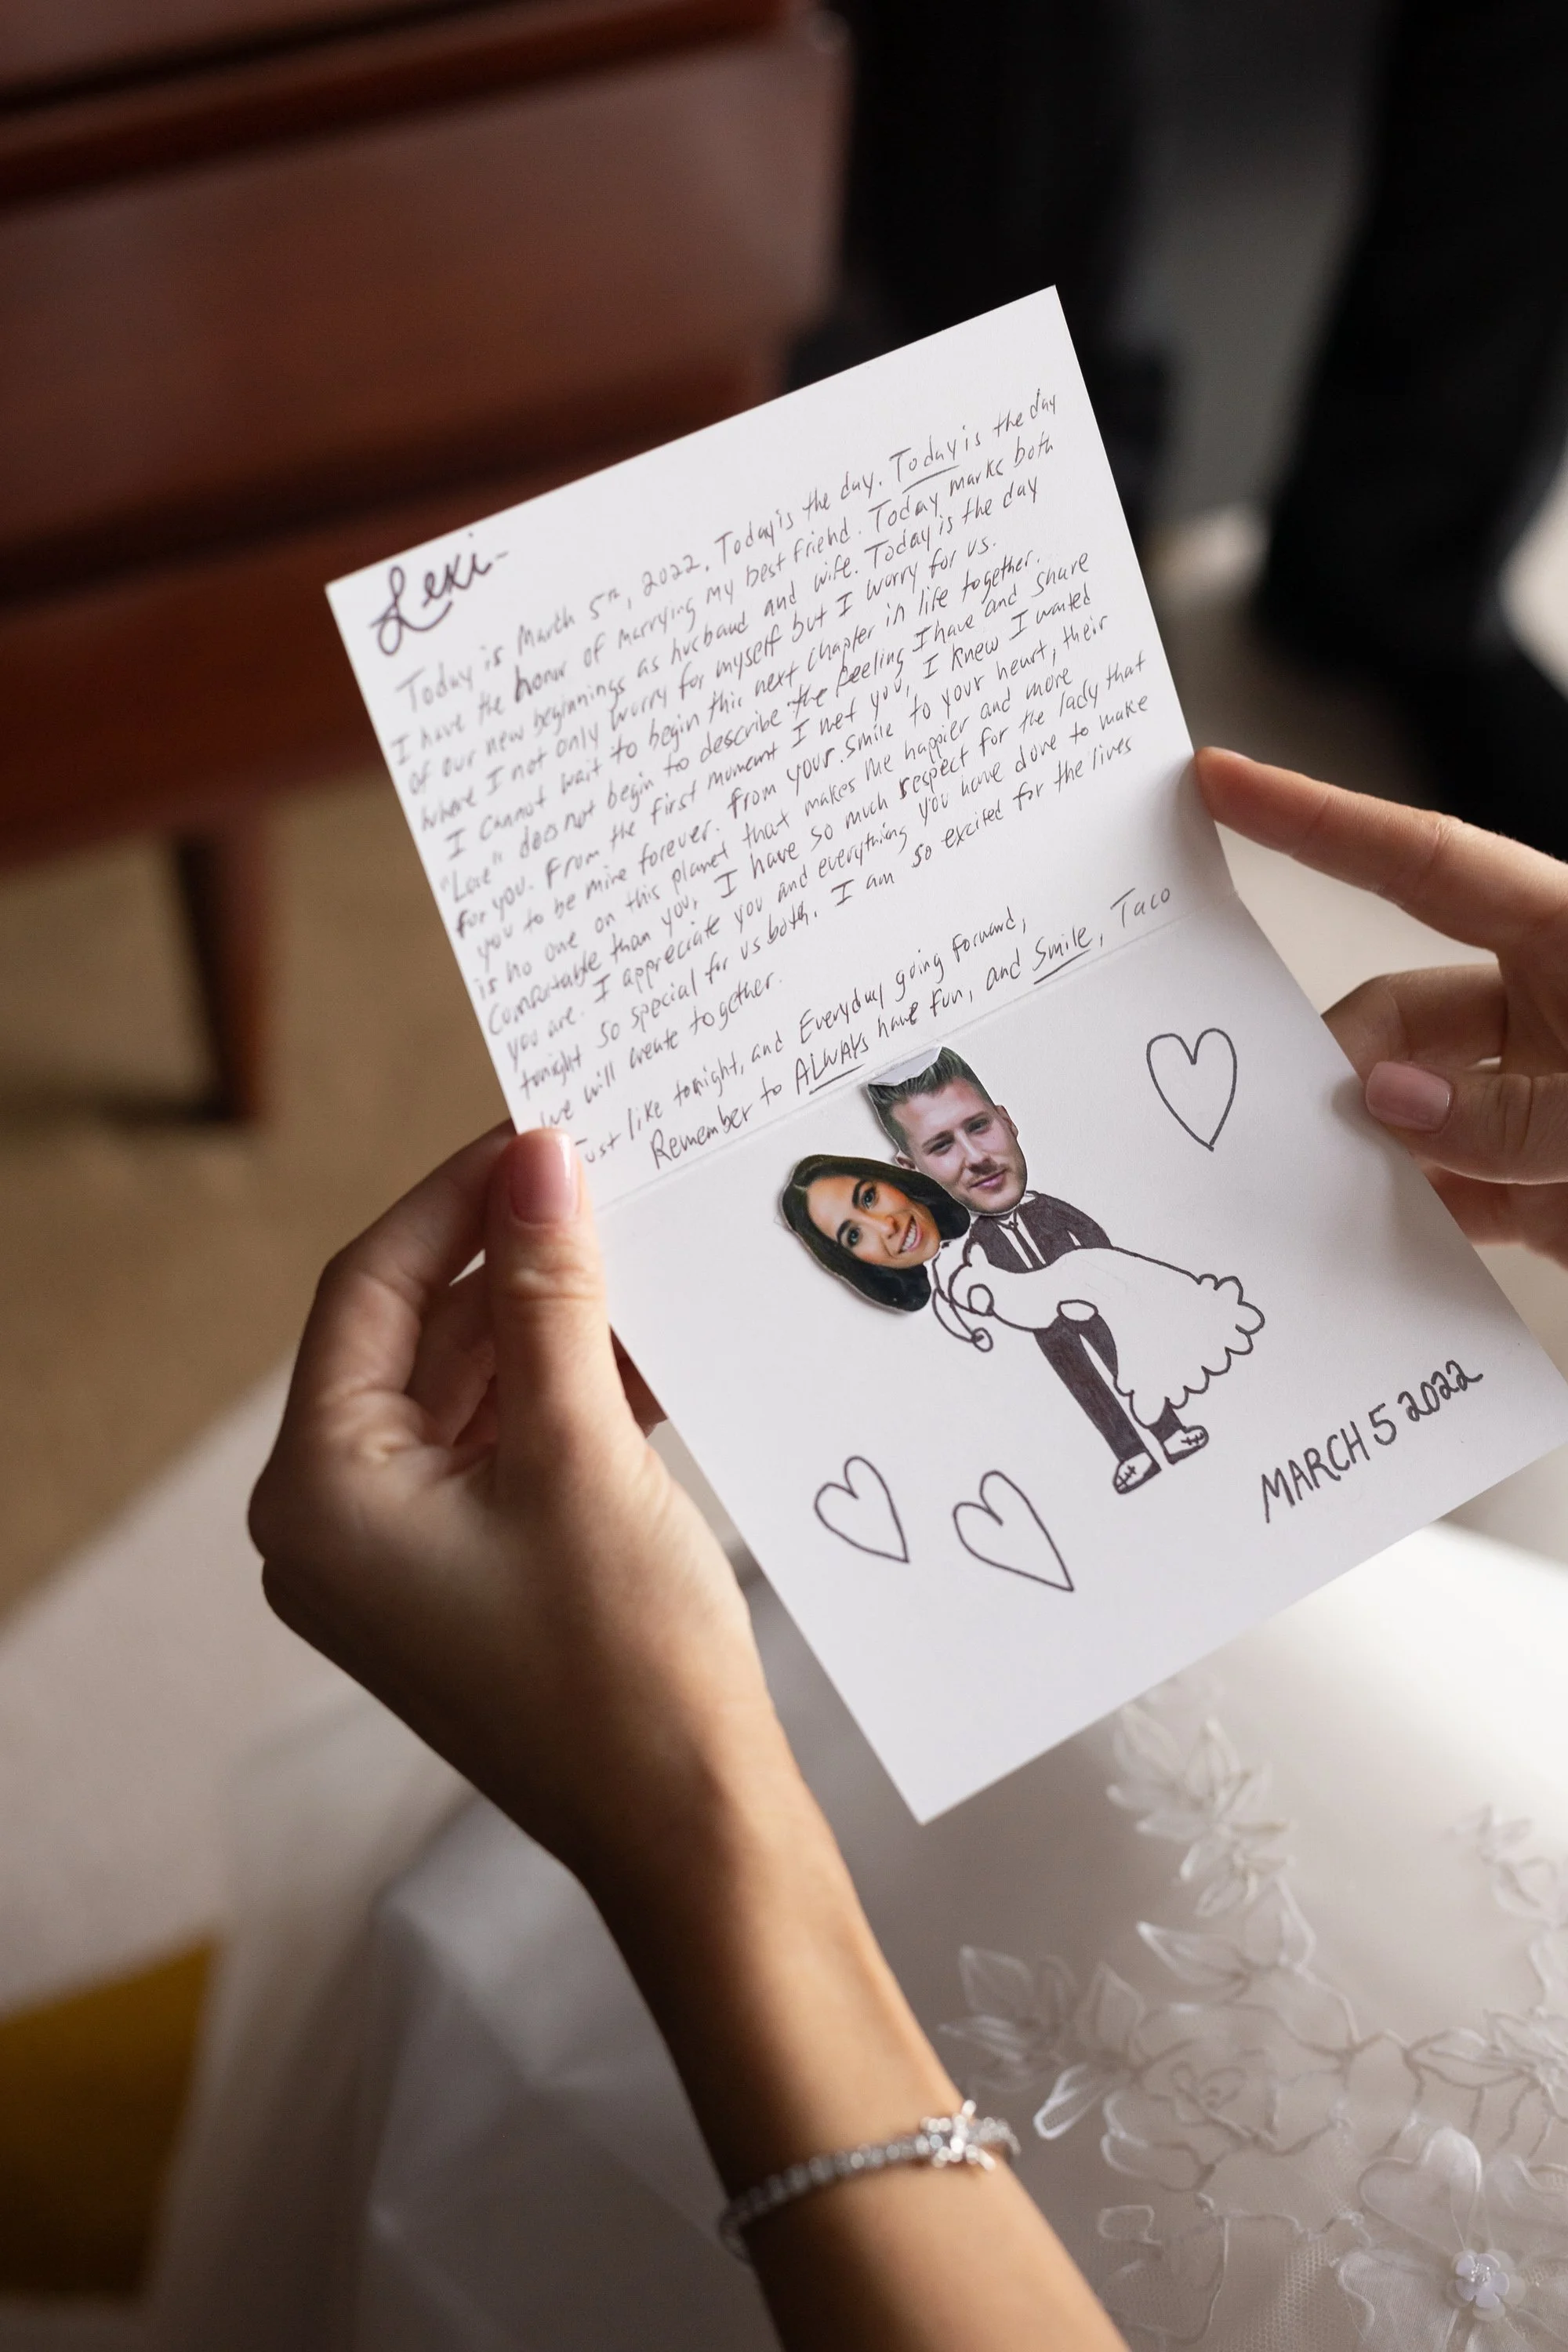 Lexi-
Today is March 5th, 2022. Today is the day. Today is the day
I have the honor of marrying my best friend. Today marks both
of our new beginnings as husband and wife. Today is the day
where I not only worry for myself but I worry for us.
I cannot wait to begin this next chapter in life together.
"Love" does not begin to describe the feeling I have and share
for you. From the first moment I met you, I knew I wanted
you to be mine forever. From your smile to your heart, their
is no one on this planet that makes me happier and more
Comfortable than you, I have so much respect for the lady that
you are. I appreciate you and everything you have done to make
tonight so special for us both. I am so excited for the lives
we will create together.
Just like tonight, and Everyday going forward,
Remember to ALWAYS have fun, and Smile, Taco
MARCH 5 2022